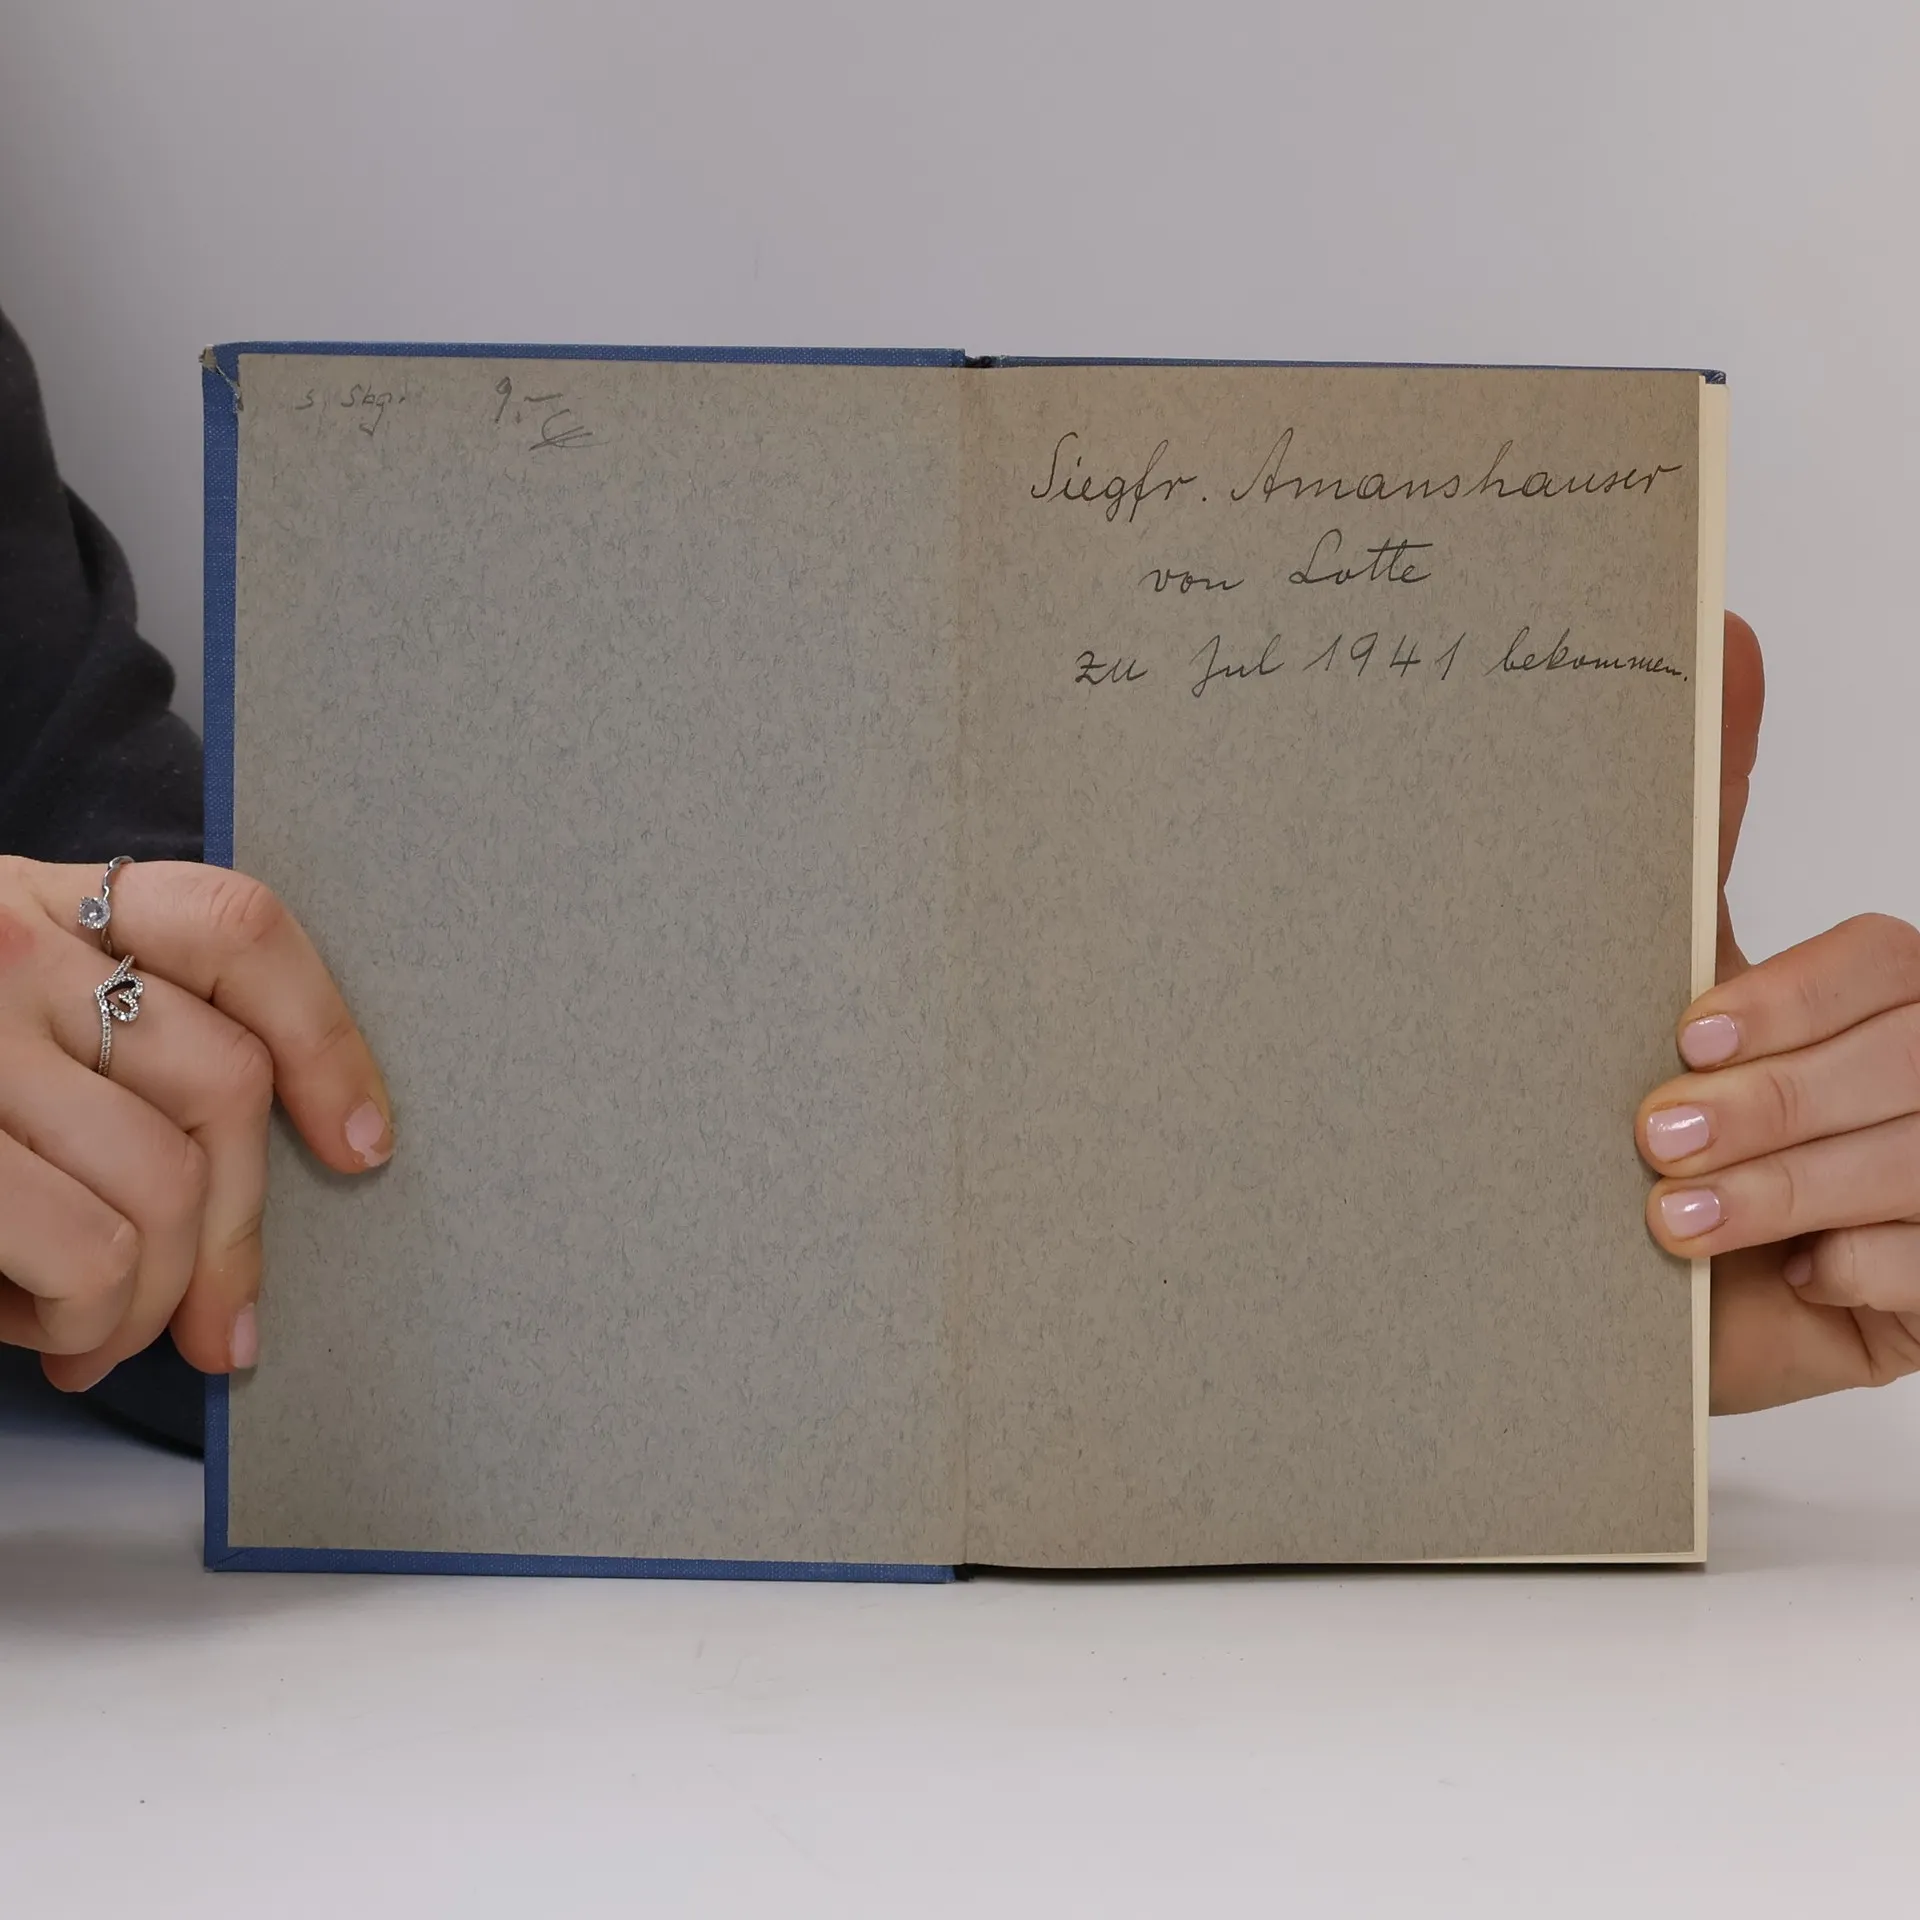 s. Sbg. 9.-
Siegfr. Amanshauser
von Lotte
zu Jul 1941 bekommen.